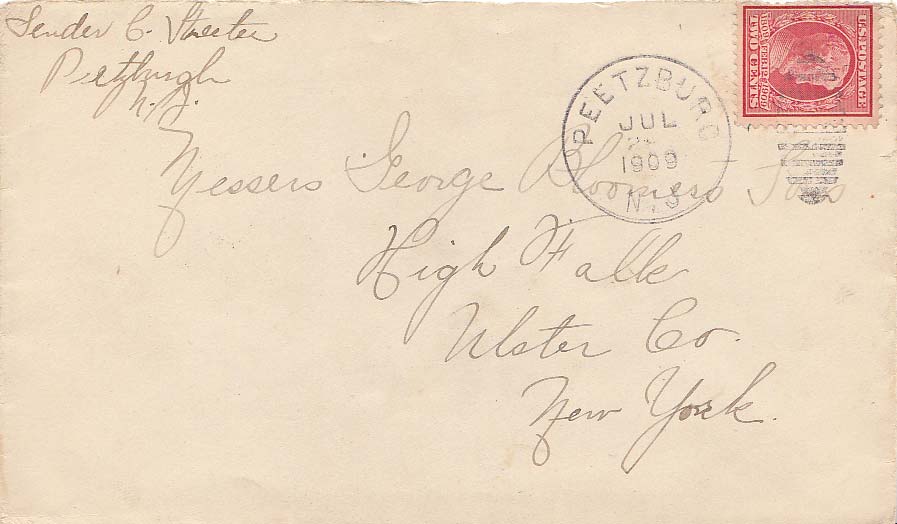 Sender C. Streeter
Peetzburgh
N. J.
PEETZBURG
JUL
1909
N.J.
U.S. POSTAGE
TWO CENTS
Messers George Bloomers Sons
High Falls
Ulster Co.
New York.